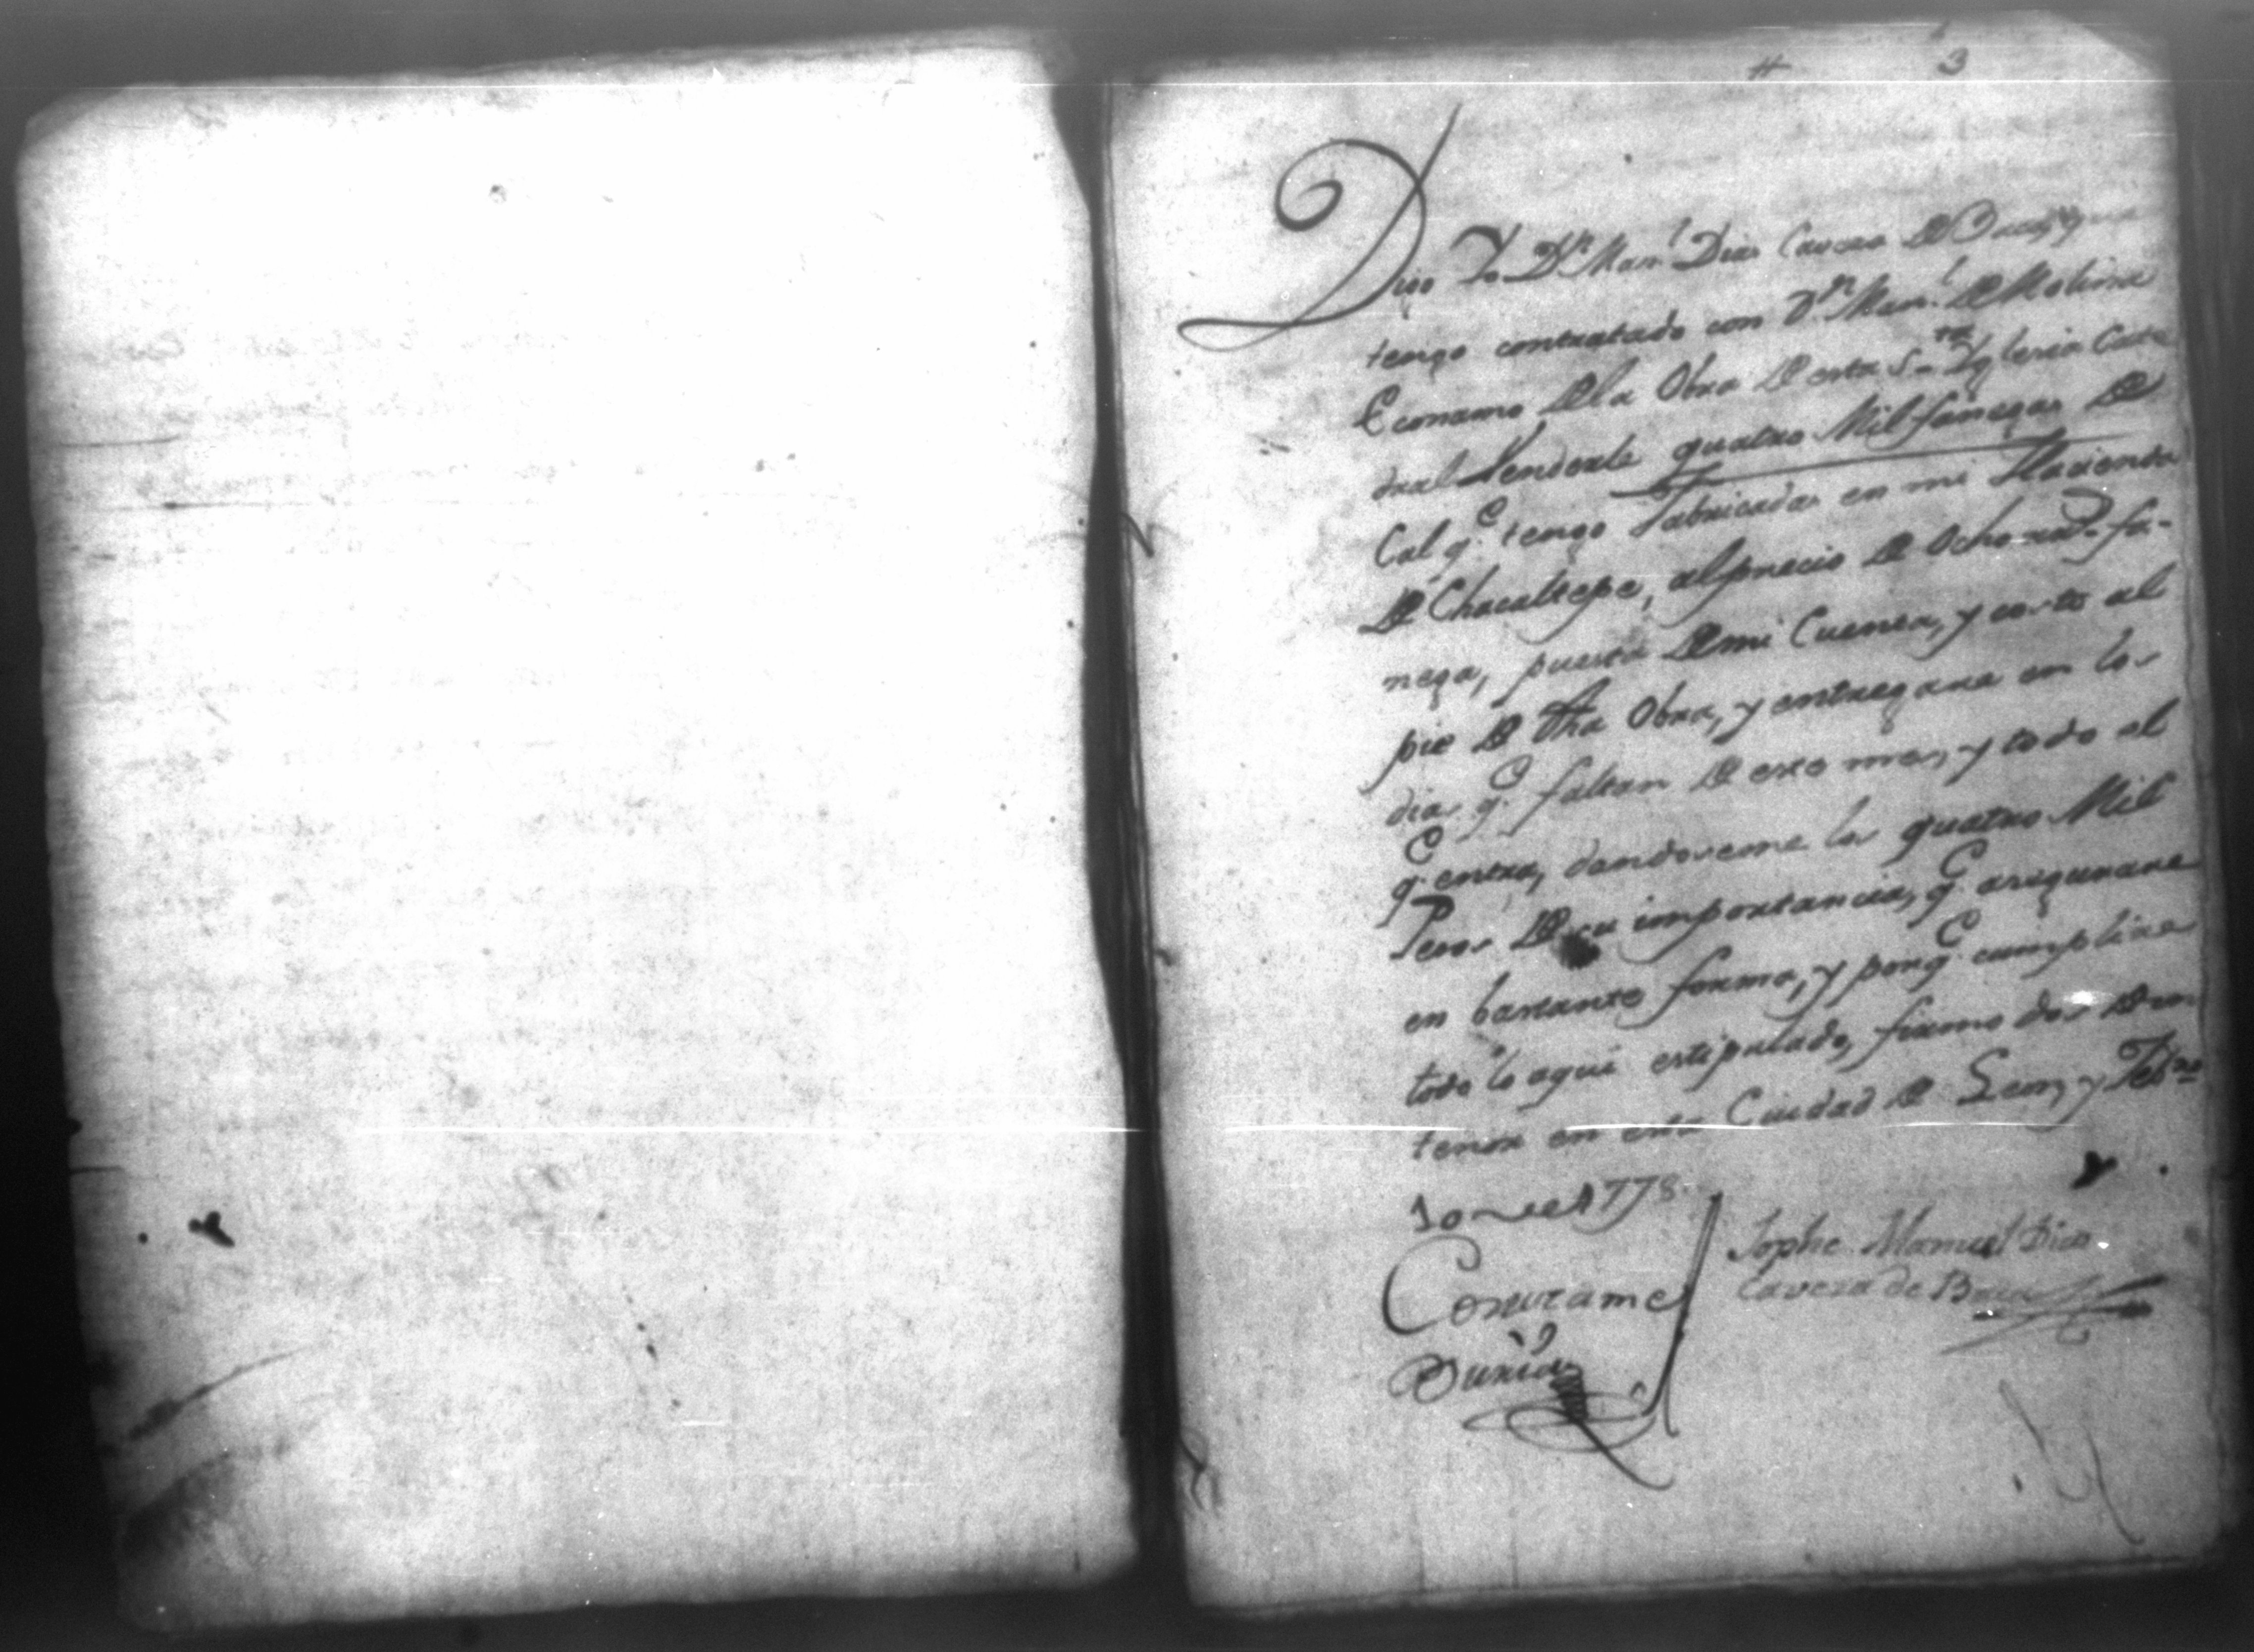 3
Digo Yo Dn. Manl. Dias Caveza De Baca, q
tengo contratado con Dn. Manl. De Molina
Economo Dela Obra De esta Sta. Yglesia Cate
dral Venderle quatro Mil fanegas De
Cal qe. tengo Fabricadas en mi Hacienda
De Chacaltepe, al precio De Ocho rs. fa-
nega, puesta De mi Cuenta, y costo al
pie De dha Obra, y entregare en los
dias qe. faltan De este mes, y todo el
qe. entra, dandoseme los quatro Mil
Pesos De su importancia, qe. asegurare
en bastante forma, y porqe. cumplire
todo lo aqui estipulado, firmo dos De un
tenor en esta Ciudad De Leon, y Febro
10 de 1778.
Josphe Manuel Dias
Caveza de Baca